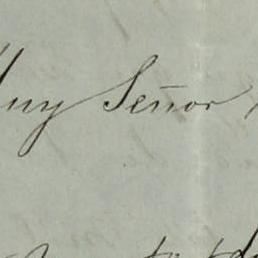 Muy Señor